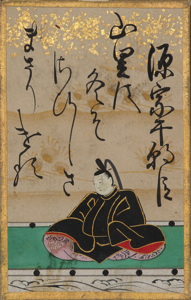 源宗于朝臣
山里は
冬そ
さひしさ
まさり
ける